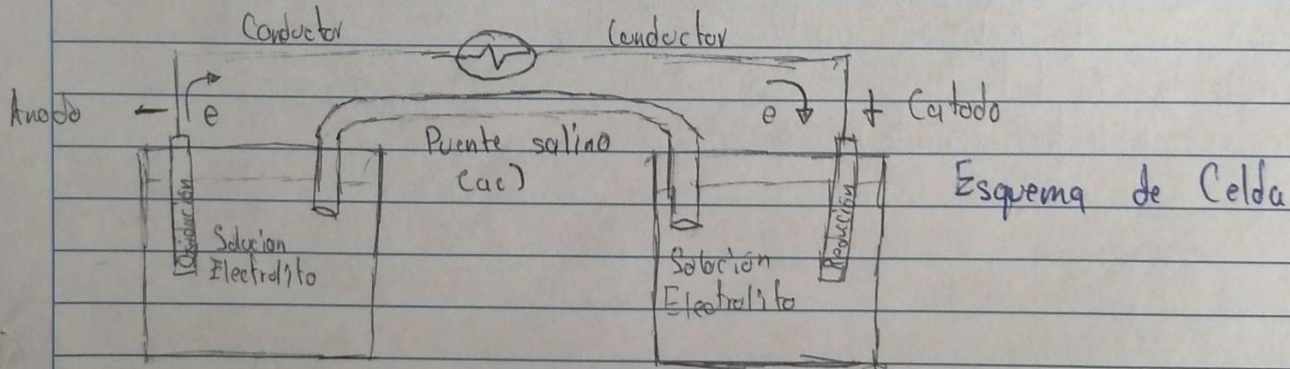 Conductor
Conductor
Anodo
-
e
e
+ Catodo
Puente salino
(ac)
Esquema de Celda
Oxidación
Solución
Electrolito
Solución
Electrolito
Reducción